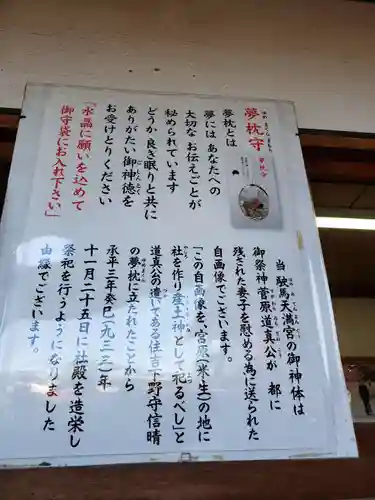 夢枕守
夢枕守
夢枕とは
夢には あなたへの
大切な お伝えごとが
秘められています
どうか 良き眠りと共に
ありがたい御神徳を
お受けとりください
「水晶に願いを込めて
御守袋にお入れ下さい」
当 駛馬天満宮の御神体は
御祭神 菅原道真公が 都に
残された妻子を慰める為に送られた
自画像でございます。
「この自画像を、宮原(米生)の地に
社を作り産土神として祀るべし」と
道真公の遣いである住吉下野守信晴
の夢枕に立たれたことから
承平三年癸巳(九三三)年
十一月二十五日に社殿を造栄し
祭祀を行うようになりました
由縁でございます。